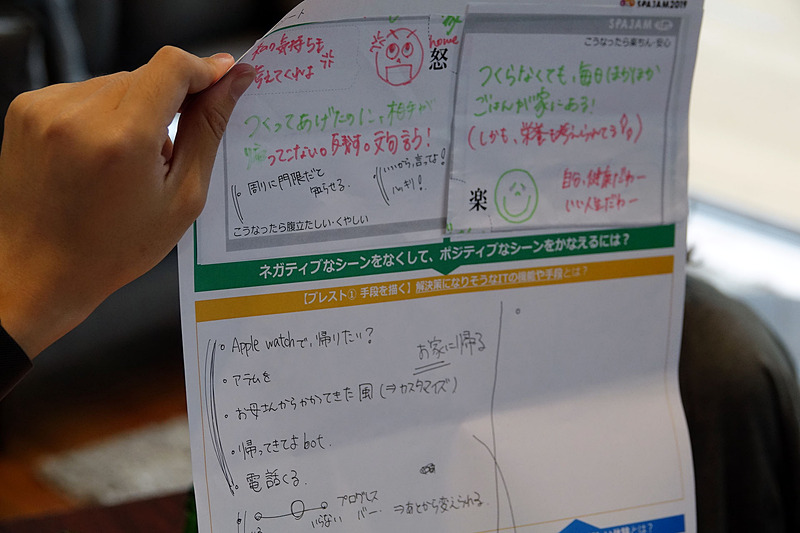 SPAJAM2019
ート
SPAJAM
こうなったら楽ちん・安心
home
怒
私の気持ちも
考えてくれよ
つくってあげたのに、相手が
帰ってこない。残す。文句言う!
周りに門限だと
知らせる.
いいから、言ってよ!
ハッキリ!
こうなったら腹立たしい・くやしい
つくらなくても、毎日ほかほか
ごはんが家にある!
(しかも、栄養も考えられてる!)
楽
自分、健康だわー
いい人生だわー
ネガティブなシーンをなくして、ポジティブなシーンをかなえるには?
【ブレスト① 手段を描く】解決策になりそうなITの機能や手段とは?
Apple watchで、帰りたい?
お家に帰る
アラムを
お母さんからかかってきた風 (⇒カスタマイズ)
帰ってきてよbot.
電話くる.
プログレス
いらない バー. ⇒あとから変えられる.
とは?